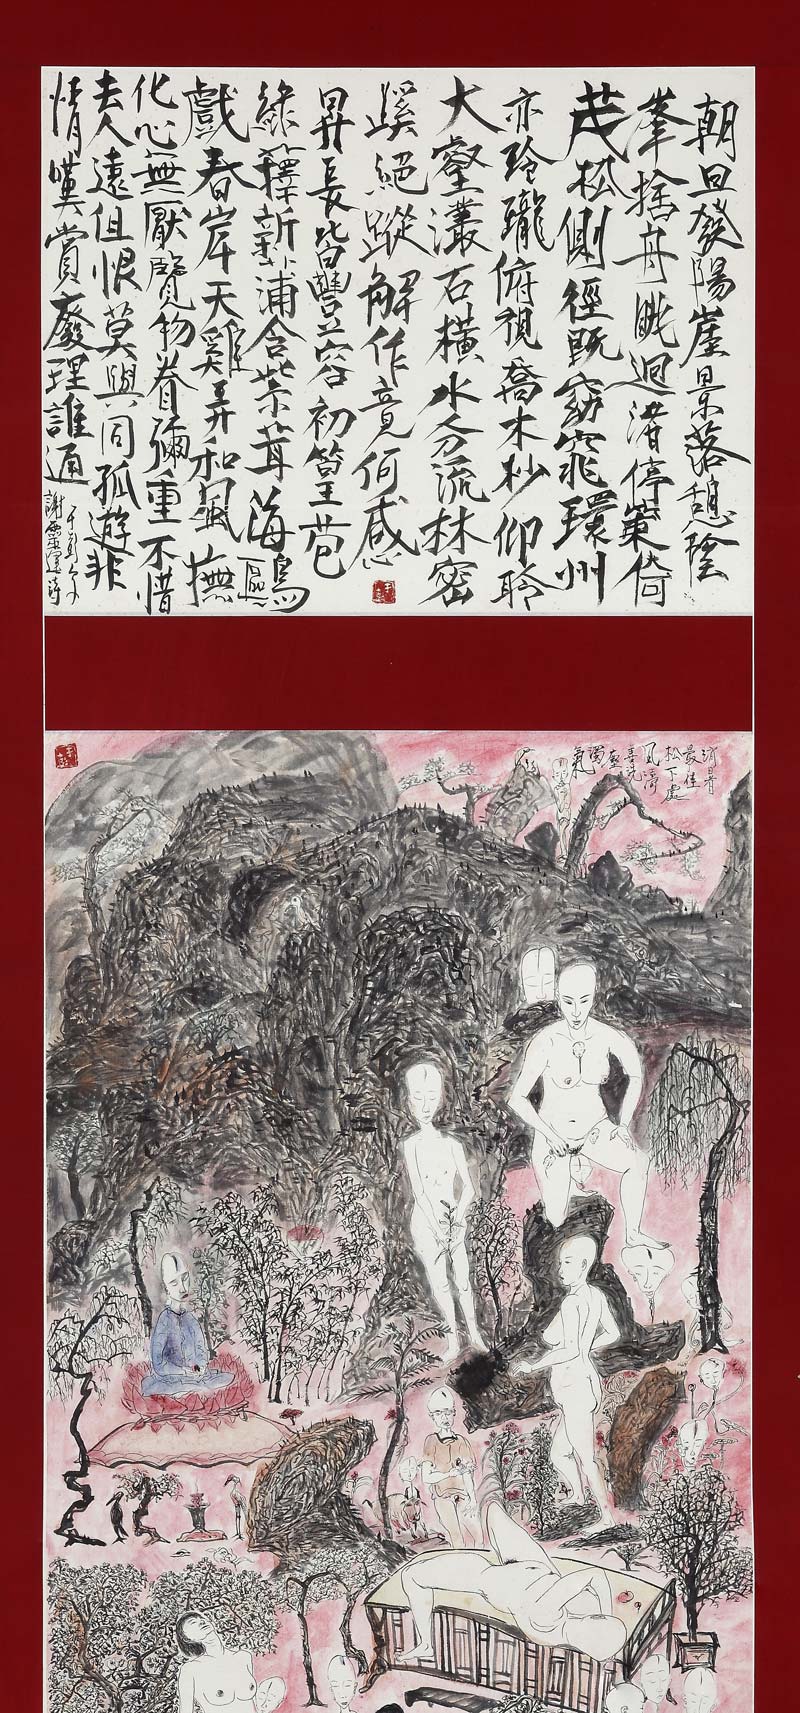 朝旦發陽崖景落憩陰
峯捨舟眺迥渚停策倚
茂松側徑既窈窕環州
亦玲瓏俯視喬木杪仰聆
大壑灇石橫水分流林密
蹊絕蹤解作竟何感
昇長皆豐容初篁苞
綠籜新蒲含紫茸海鳥
戲春岸天雞弄和風撫
化心無厭覽物眷彌重不惜
去人遠但恨莫與同孤遊非
情嘆賞廢理誰通
謝靈運詩
消暑
最佳
松下處
風濤
喜洗
塵
濁
氣